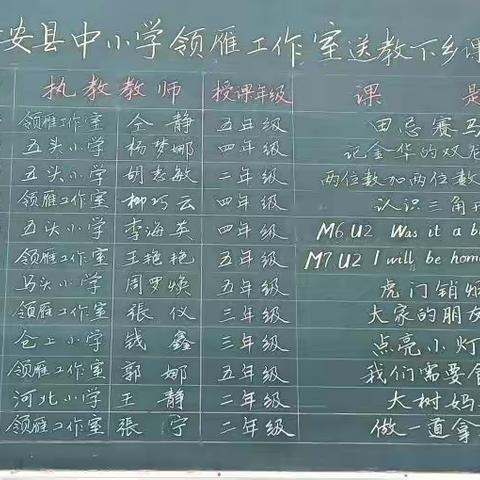 安县中小学领雁工作室送教下乡课
执教教师 授课年级 课
领雁工作室 仝静 五年级 田忌赛马
五头小学 杨梦娜 四年级 记金华的双
五头小学 胡志敏 二年级 两位数加两位数
领雁工作室 柳巧云 四年级 认识三角
五头小学 李海英 四年级 M6U2 Was it a b
领雁工作室 王艳艳 五年级 M7U2 I will be hom
马头小学 周罗焕 五年级 虎门销
领雁工作室 張仪 三年级 大家的朋
仓上小学 钱鑫 三年级 点亮小灯
领雁工作室 郭娜 五年级 我们需要
河北小学 王静 二年级 大树妈
领雁工作室 張宁 二年级 做一道拿